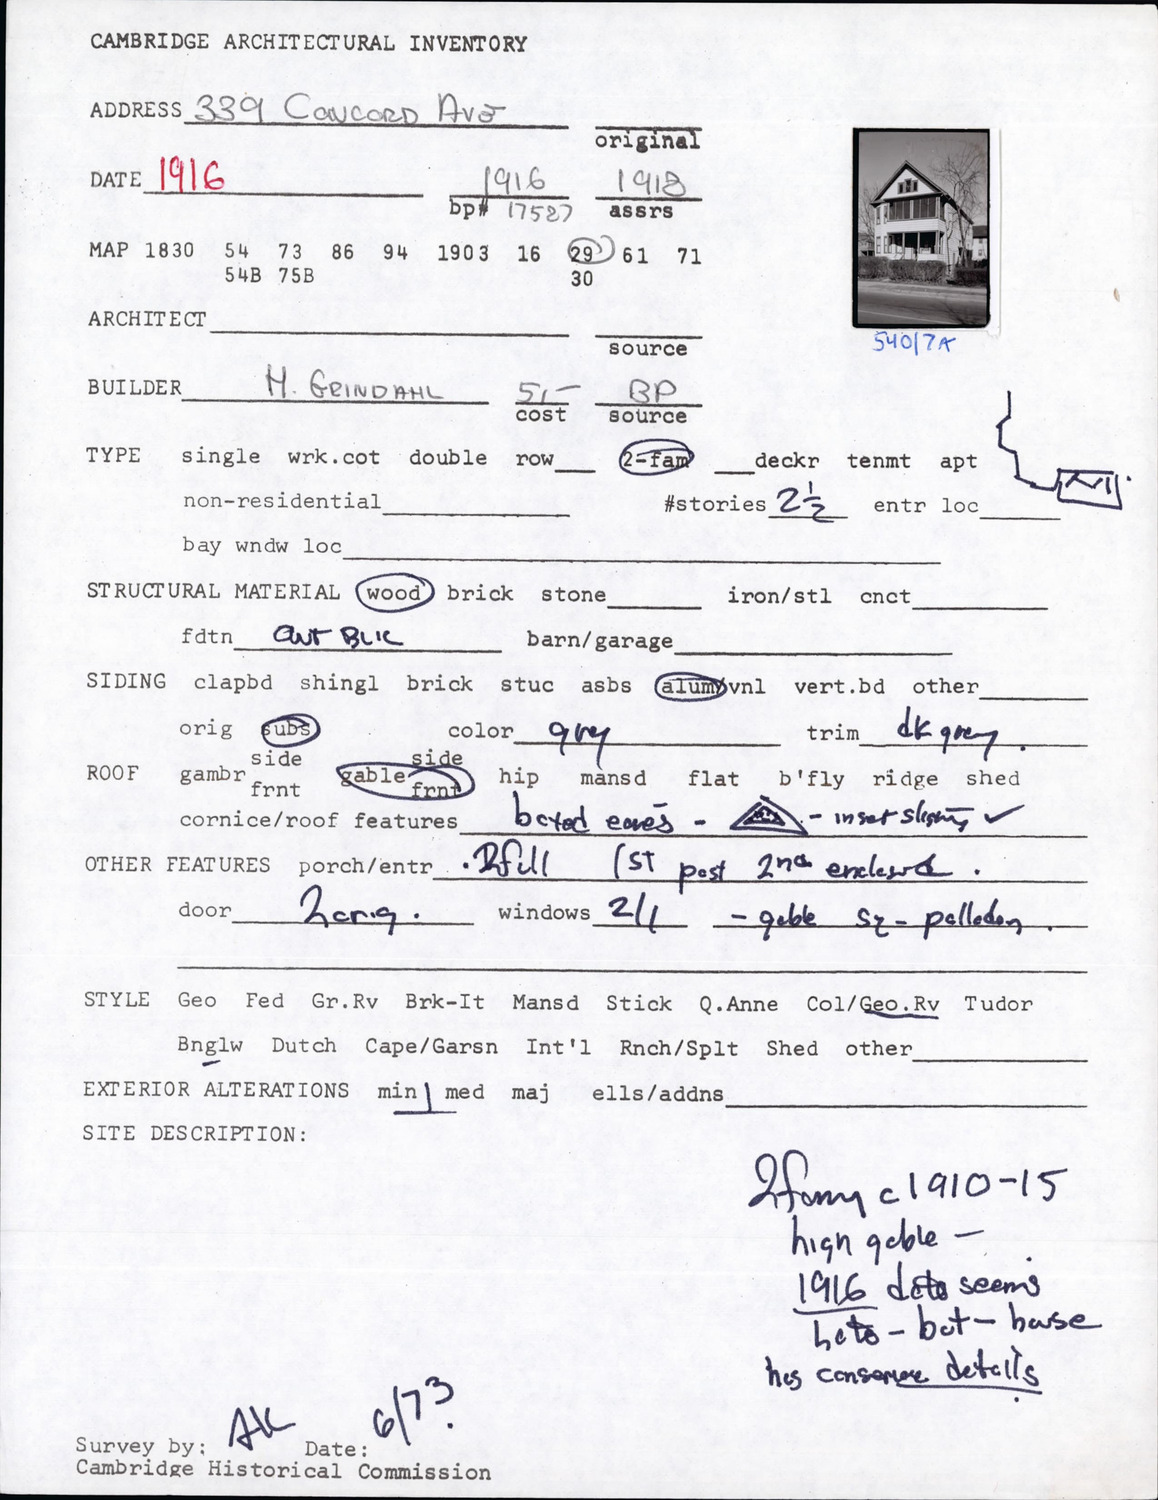 CAMBRIDGE ARCHITECTURAL INVENTORY
ADDRESS 339 CONCORD AVE
original
DATE 1916 1916 1918
bp# 17527 assrs
MAP 1830 54 73 86 94 1903 16 29 61 71
54B 75B 30
ARCHITECT
source
540/7A
BUILDER H. GRINDAHL 5,- BP
cost source
TYPE single wrk.cot double row 2-fam deckr tenmt apt
non-residential #stories 2½ entr loc
bay wndw loc
STRUCTURAL MATERIAL wood brick stone iron/stl cnct
fdtn BLK barn/garage
SIDING clapbd shingl brick stuc asbs alum/vnl vert.bd other
orig subs color grey trim dk grey
side side
ROOF gambr gable hip mansd flat b'fly ridge shed
frnt frnt
cornice/roof features boxed eaves - - inset slightly ✓
OTHER FEATURES porch/entr . 2 full 1st post 2nd enclosed .
door 2 orig. windows 2/1 - gable sq - palladan .
STYLE Geo Fed Gr.Rv Brk-It Mansd Stick Q.Anne Col/Geo.Rv Tudor
Bnglw Dutch Cape/Garsn Int'l Rnch/Splt Shed other
EXTERIOR ALTERATIONS min med maj ells/addns
SITE DESCRIPTION:
2 famy c 1910-15
high gable -
1916 date seems
late - but - house
has details
Survey by: AK Date: 6/73
Cambridge Historical Commission